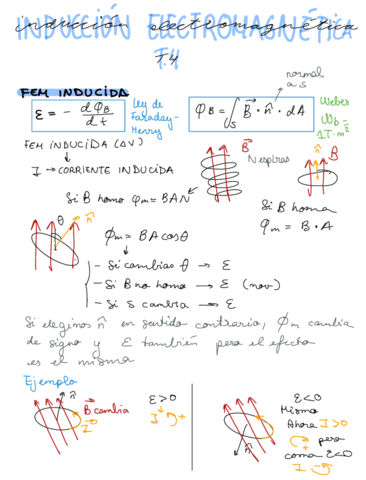 INDUCCIÓN ELECTROMAGNÉTICA
inducción electromagnética
T.4
FEM INDUCIDA
ε = - dφB/dt
ley de Faraday-Henry
φB = ∫S B⃗ · n̂ · dA
normal a S
Weber
Wb = 1T·m²
FEM INDUCIDA (ΔV)
↓
I → CORRIENTE INDUCIDA
B⃗
N espiras
n̂
B
Si B homo φm = BAN
Si B homo
φm = B · A
θ
n̂
φm = BA cosθ
- Si cambias θ → ε
- Si B no homo → ε (mov)
- Si S cambia → ε
Si elegimos n̂ en sentido contrario, φm cambia
de signo y ε también pero el efecto
es el mismo
Ejemplo
n̂
B⃗ cambia
I
ε > 0
I +
n̂
ε < 0
Misma
Ahora I > 0
pero
como ε < 0
I